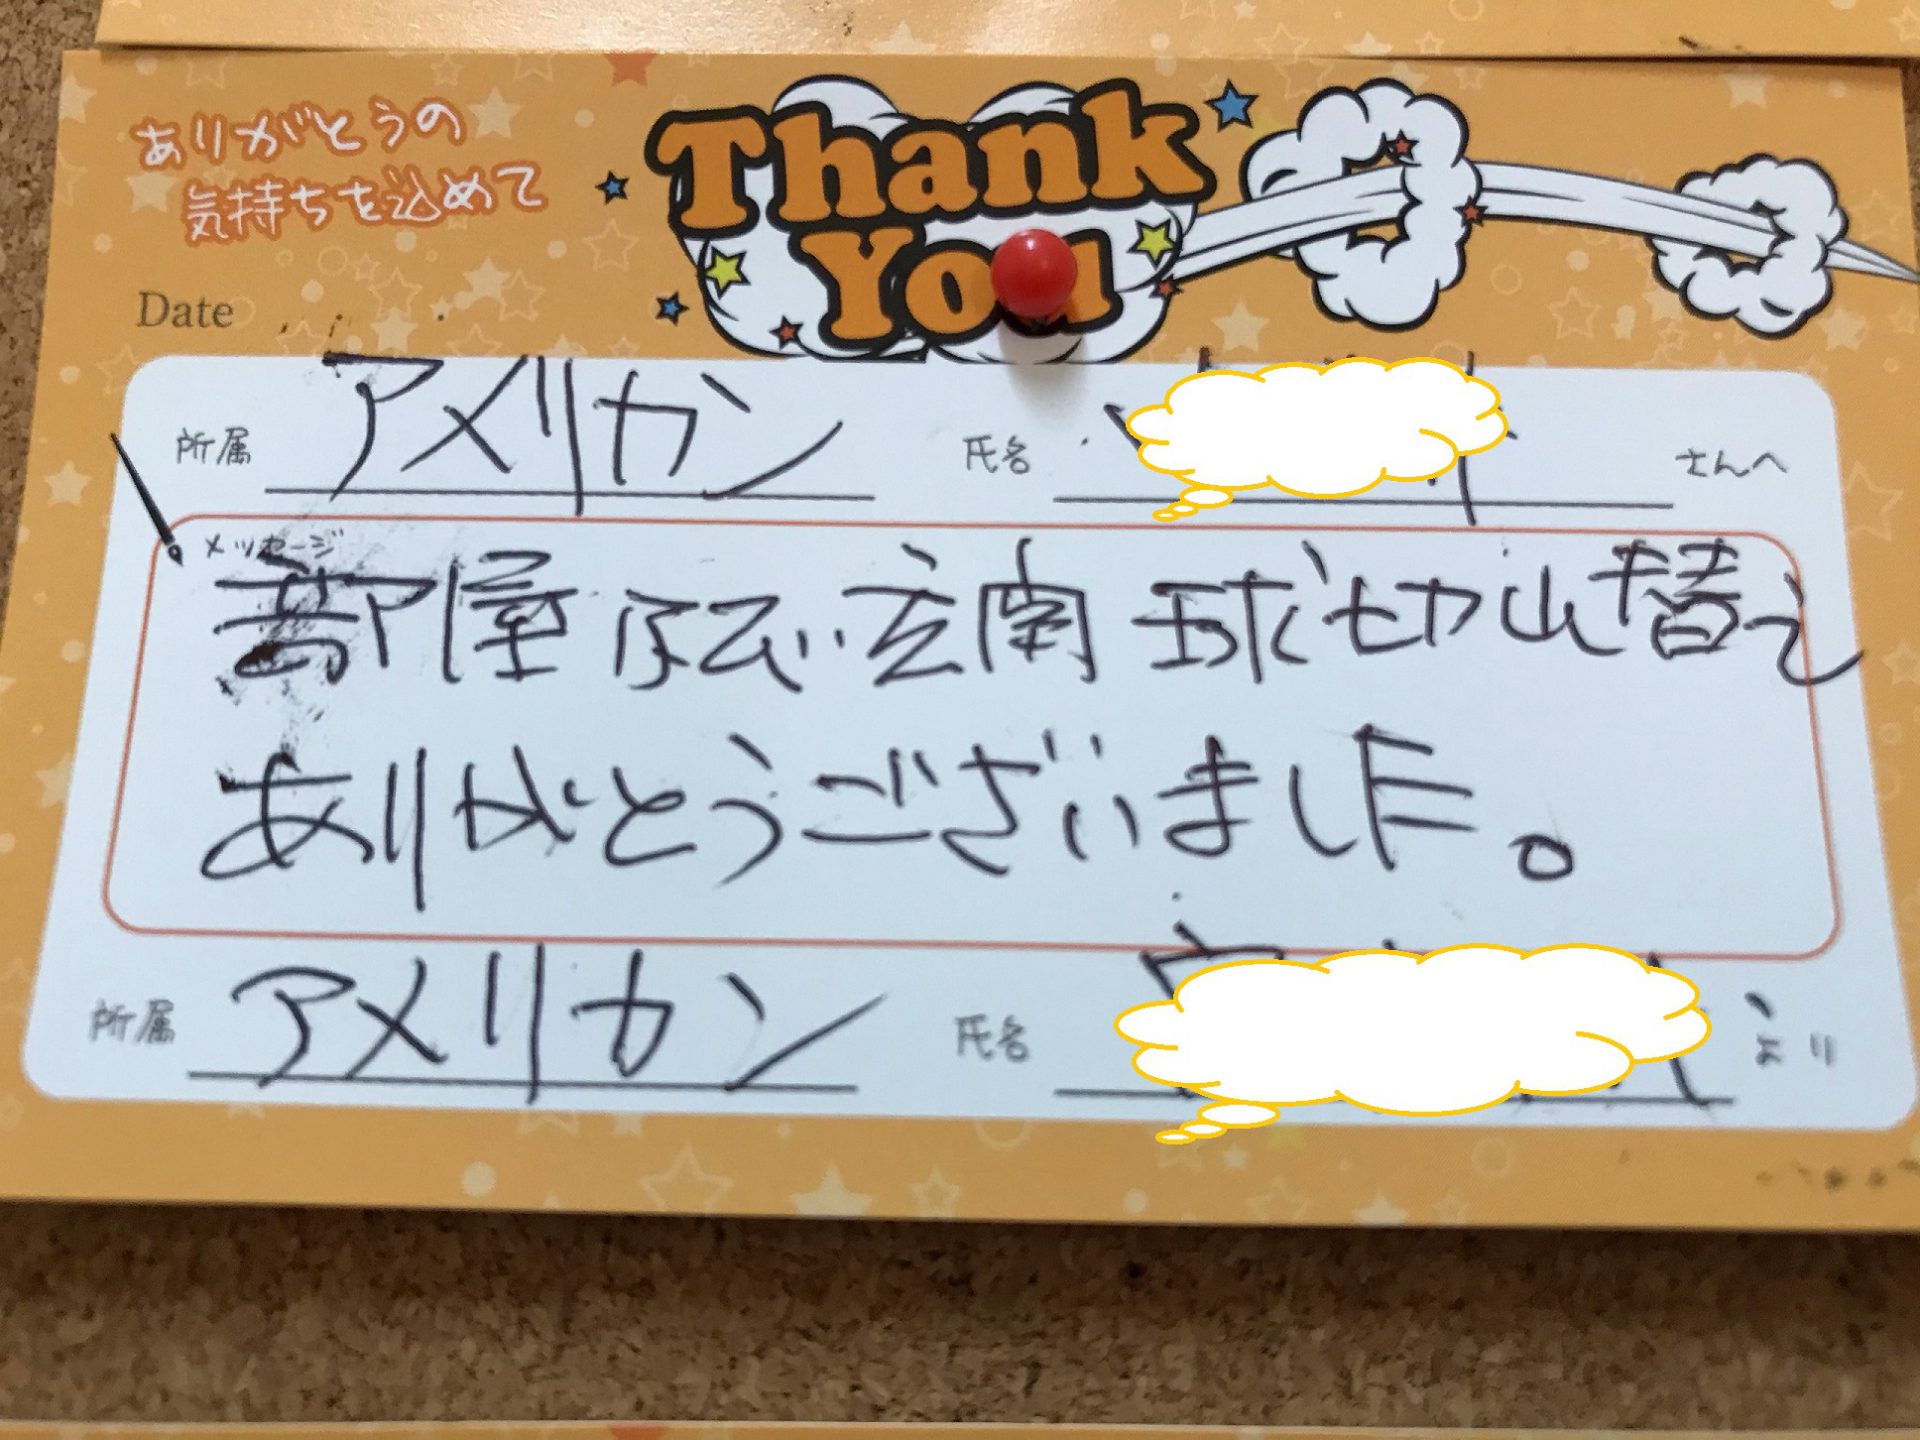 ありがとうの
気持ちを込めて
Thank
You
Date
所属 アメリカン 氏名 さんへ
メッセージ
部屋及び玄関 球切り替え
ありがとうございました。
所属 アメリカン 氏名 より